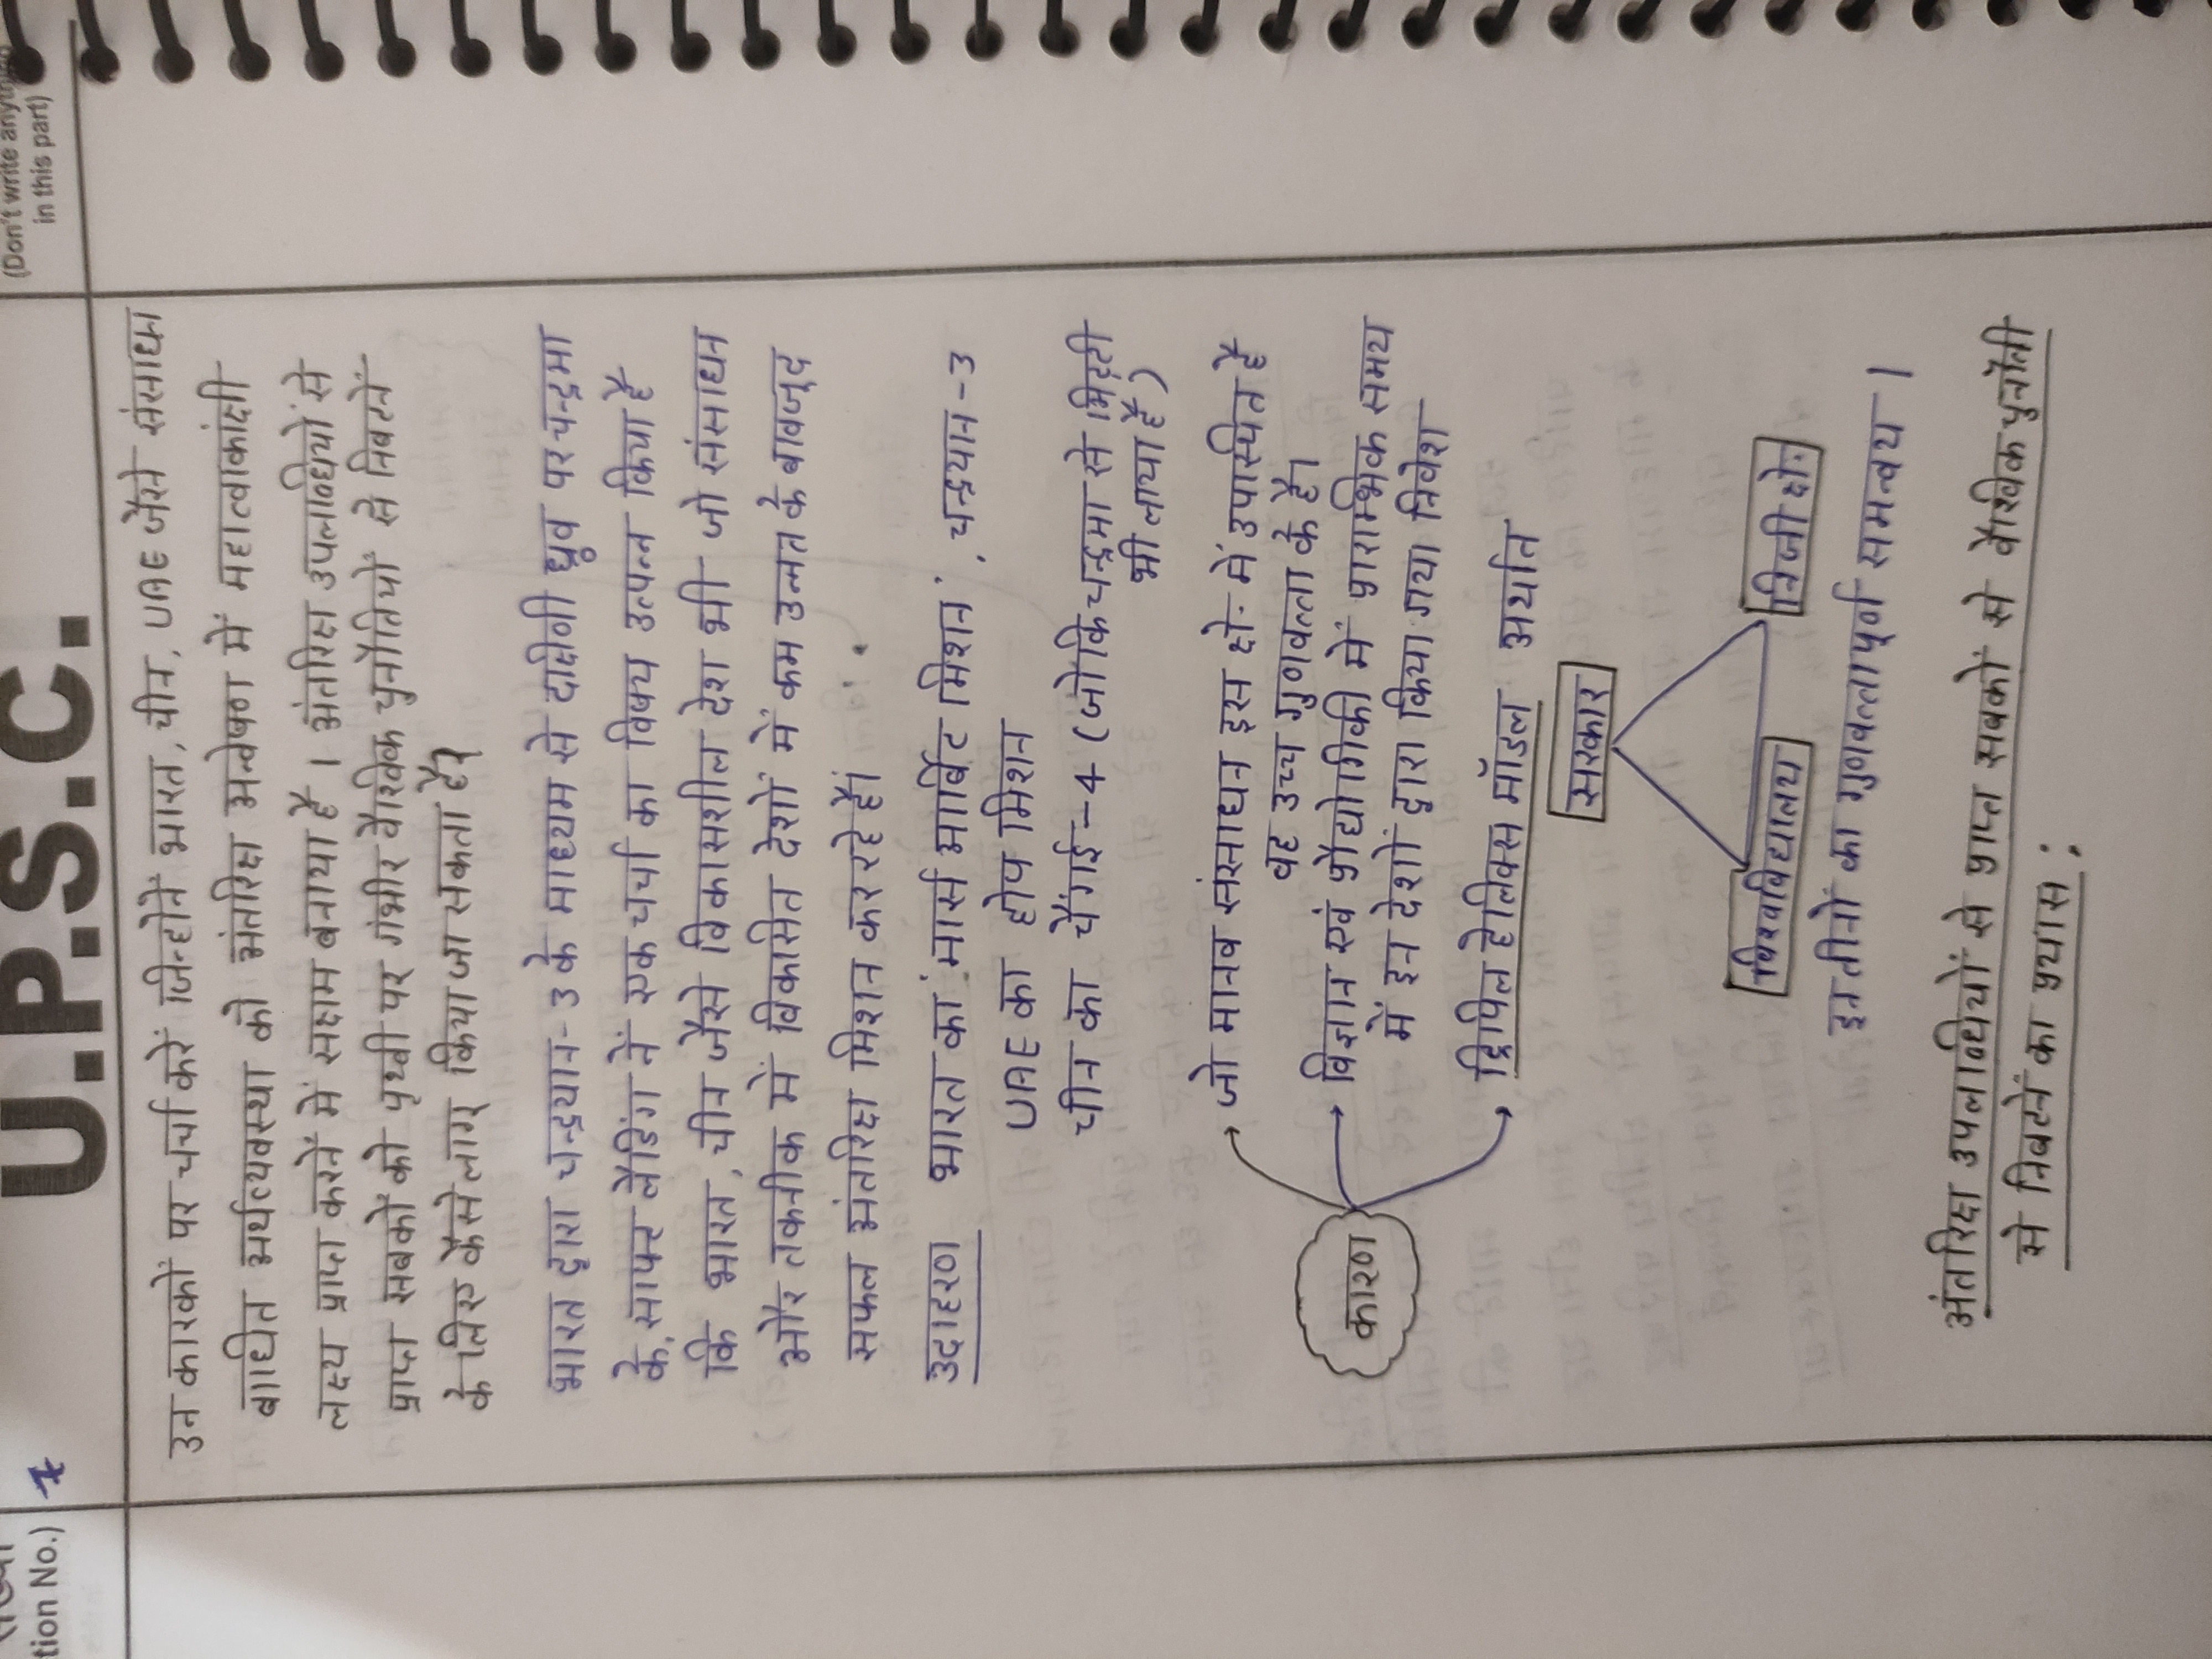 tion No.)
U.P.S.C.
(Don't write
in this part)
उन कारकों पर चर्चा करें जिन्होनें भारत, चीन, UAE जैसे संसाधन
बाधित अर्थव्यवस्था को अंतरिक्ष अन्वेषण में महात्वाकांक्षी
लक्ष्य प्राप्त करनें में सक्षम बनाया है । अंतरिक्ष उपलब्धियों से
प्राप्त सबकों को पृथ्वी पर गंभीर वैश्विक चुनौतियों से निबटनें
के लिए कैसे लागू किया जा सकता है?
भारत द्वारा चन्द्रयान-3 के माध्यम से दक्षिणी ध्रुव पर चन्द्रमा
के साफ्ट लैंडिंग नें एक चर्चा का विषय उत्पन्न किया है
कि भारत, चीन जैसे विकासशील देश भी जो संसाधन
और तकनीक में विकसित देशों में कम उन्नत के बावजूद
सफल अंतरिक्ष मिशन कर रहे हैं।
उदाहरण भारत का 'मार्स आर्बिट मिशन', चन्द्रयान-3
UAE का होप मिशन
चीन का चैंगई-4 (जोकि चन्द्रमा से मिट्टी
भी लाया है)
कारण
→ जो मानव संसाधन इस क्षे॰ में उपस्थित है
वह उच्च गुणवत्ता के है।
→ विज्ञान एवं प्रौद्योगिकी में प्रारम्भिक समय
में इन देशों द्वारा किया गया निवेश
→ ट्रिपिल हेलिक्स मॉडल अर्थात
सरकार
विश्वविद्यालय निजी क्षे॰
इन तीनों का गुणवत्तापूर्व समन्वय ।
अंतरिक्ष उपलब्धियों से प्राप्त सबकों से वैश्विक चुनौती
से निबटनें का प्रयास :